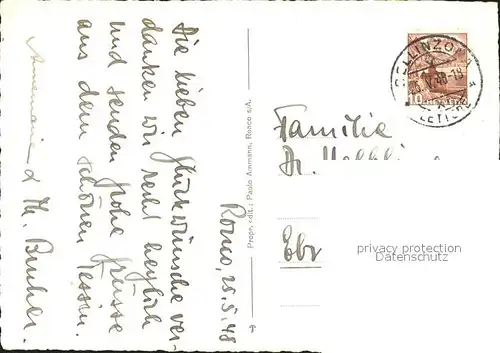 Ronco, 25.5.48
Die lieben Glückwünsche ver-
danken wir recht herzlich
und senden frohe Grüsse
aus dem schönen Tessin.
Annemarie & Th.
Propr. edit.: Paolo Ammann, Ronco s/A.
BELLINZONA
LETTERE
10
HELVETIA
Familie
Dr.
Ebr
privacy protection
Datenschutz